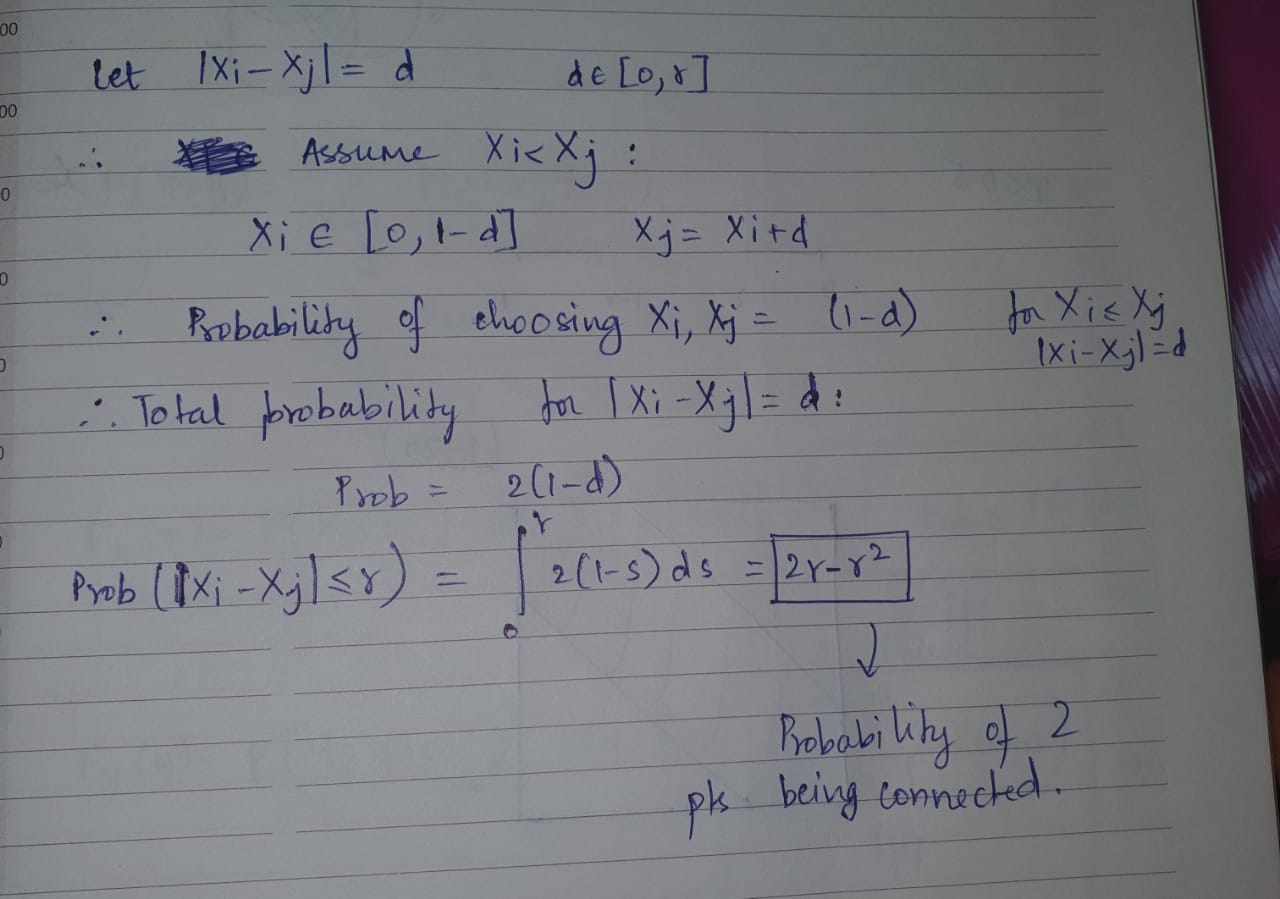 00
Let |Xi - Xj| = d d ∈ [0, r]
00
∴ Assume Xi < Xj :
0
Xi ∈ [0, 1-d] Xj = Xi + d
0
∴ Probability of choosing Xi, Xj = (1-d) for Xi ≤ Xj
|Xi - Xj| = d
∴ Total probability for |Xi - Xj| = d :
Prob = 2(1-d)
Prob (|Xi - Xj| ≤ r) = ∫₀ʳ 2(1-s) ds = 2r - r²
↓
Probability of 2
pts being connected.